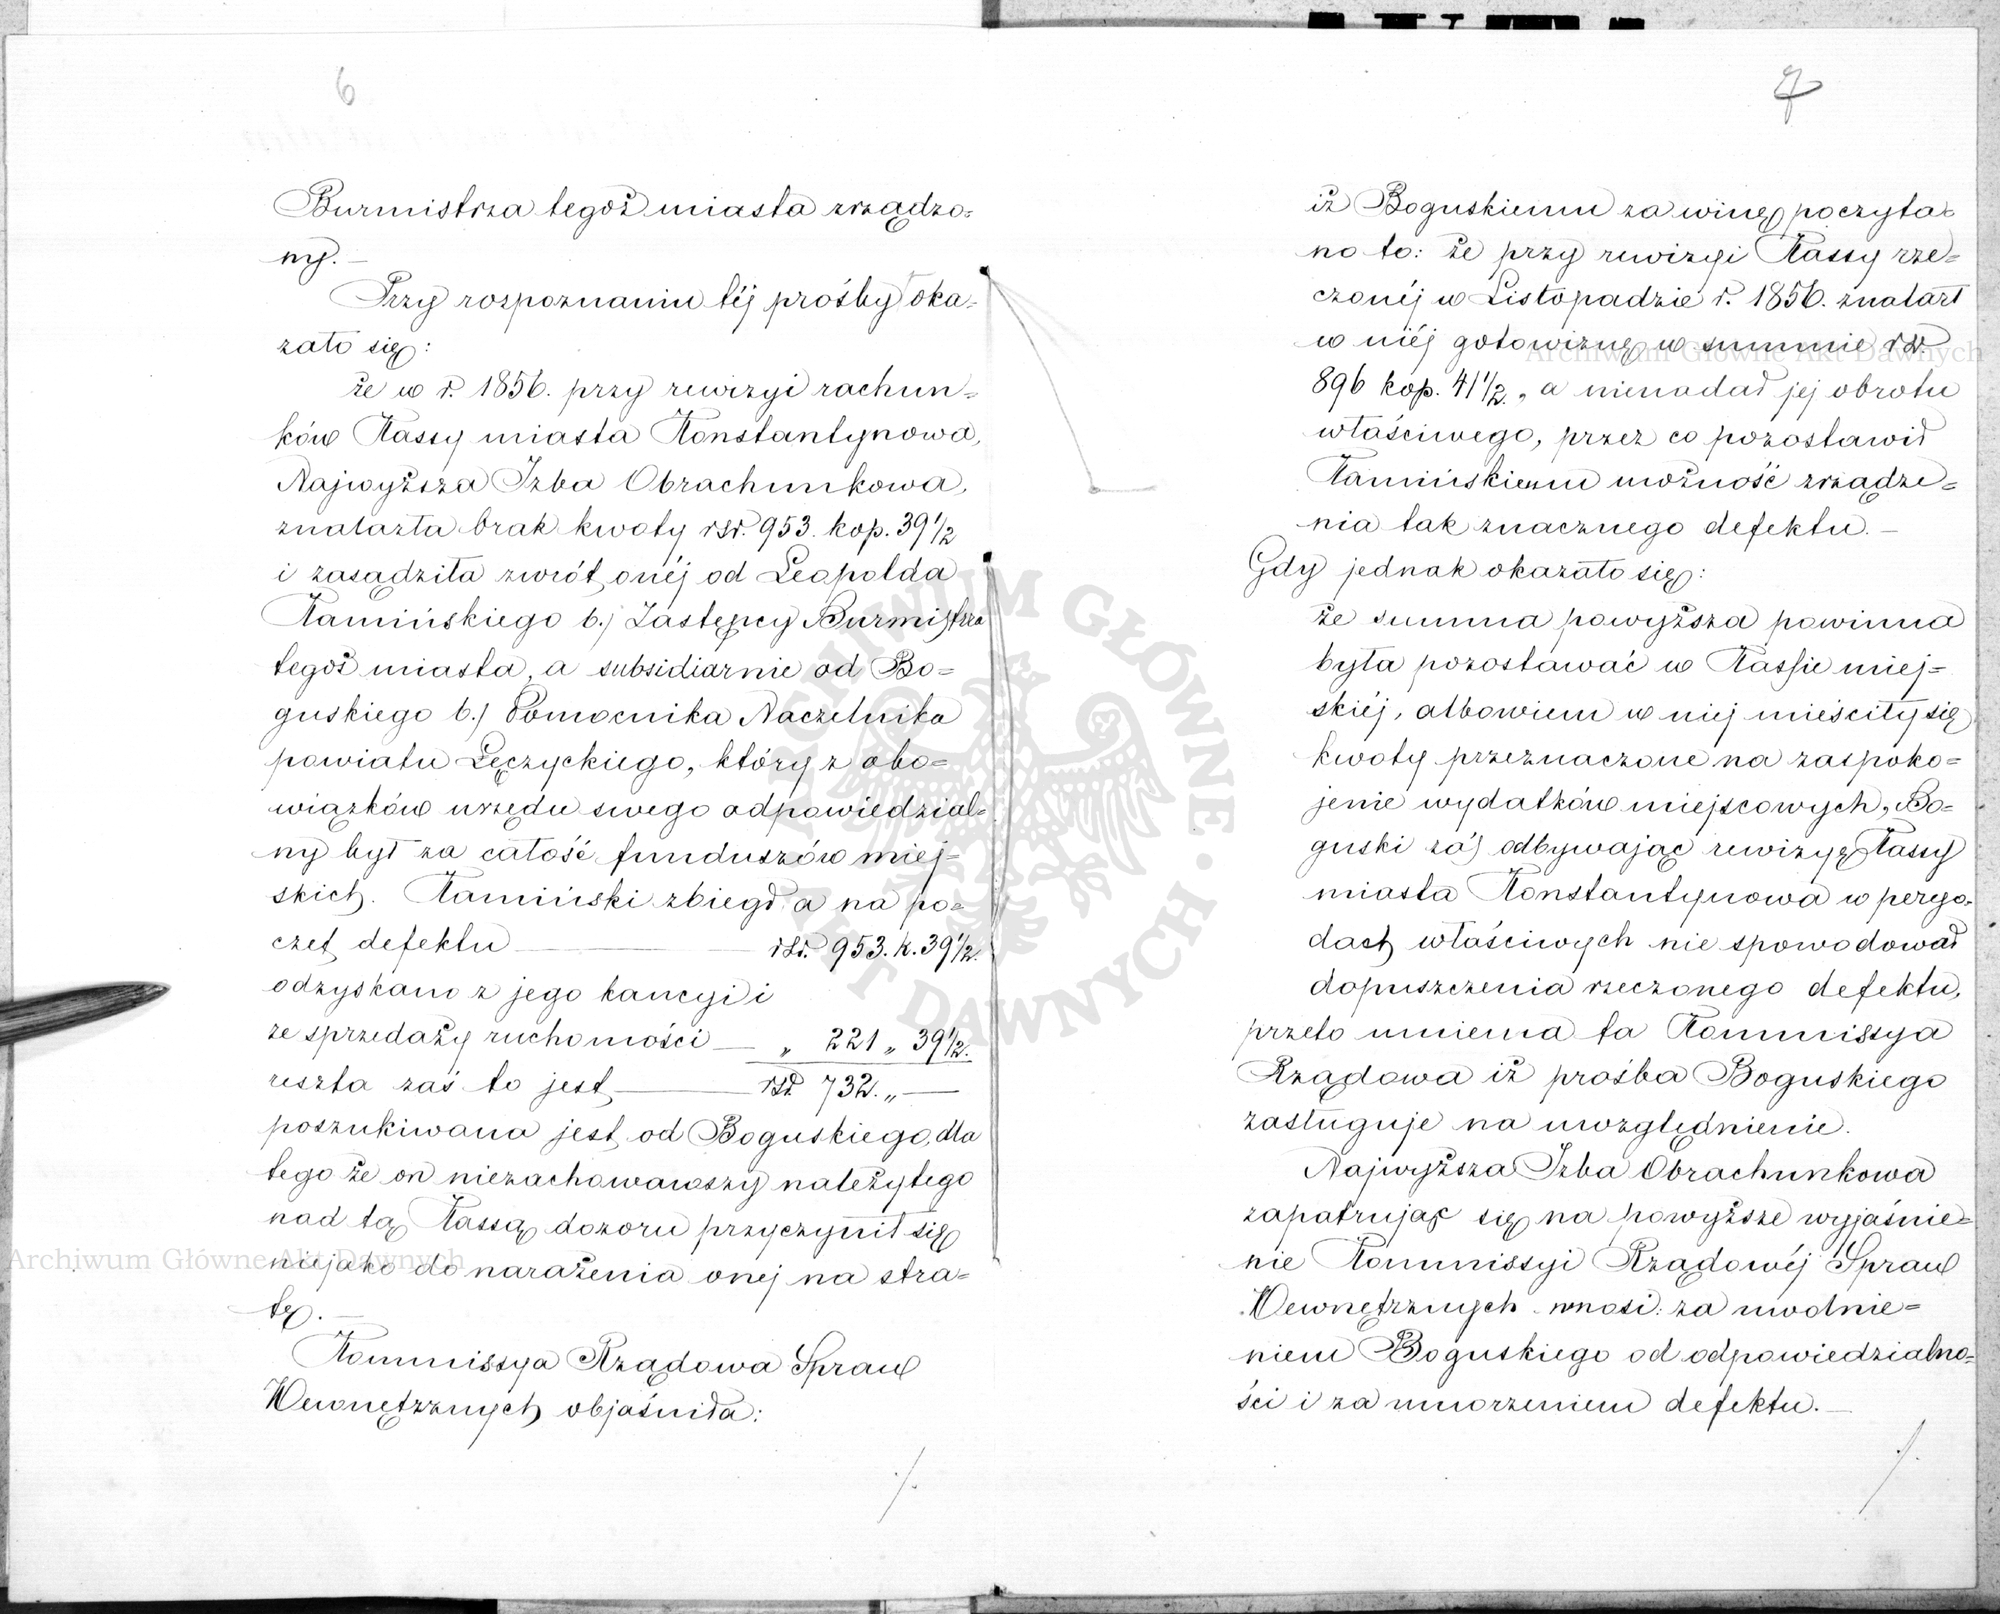 6
Burmistrza tegoż miasta zrządzo=
ny. —
Przy rozpoznaniu téj prośby oka-
zało się:
że w r. 1856. przy rewizyi rachun=
ków Kassy miasta Konstantynowa,
Najwyższa Izba Obrachunkowa,
znalazła brak kwoty rsr. 953. kop. 39½
i zasądziła zwrót onéj od Leopolda
Kamińskiego b.) Zastępcy Burmistrza
tegoż miasta, a subsidiarnie od Bo=
guskiego b.) Pomocnika Naczelnika
powiatu Łęczyckiego, który z obo=
wiązków urzędu swego odpowiedzial=
ny był za całość funduszów miej=
skich. Kamiński zbiegł a na po=
czet defektu — rsr. 953. k. 39½.
odzyskano z jego kaucyi i
ze sprzedaży ruchomości — „ 221 „ 39½.
reszta zaś to jest — rsr. 732. „ —
poszukiwana jest od Boguskiego, dla
tego że on niezachowawszy należytego
nad tą Kassą dozoru przyczynił się
niejako do narażenia onej na stra=
tę. —
Kommissya Rządowa Spraw
Wewnętrznych objaśniła:
./.
7
iż Boguskiemu za winę poczyta=
no to: że przy rewizyi Kassy rze=
czonéj w Listopadzie r. 1856. znalazł
w niéj gotowiznę w summie rsr
896 kop. 41½. „ a nienadał jej obrotu
właściwego, przez co pozostawił
Kamińskiemu możność zrządze=
nia tak znacznego defektu. —
Gdy jednak okazało się:
że summa powyższa powinna
była pozostawać w Kassie miej=
skiéj, albowiem w niej mieściły się
kwoty przeznaczone na zaspoko=
jenie wydatków miejscowych, Bo=
guski zaś odbywając rewizyę Kassy
miasta Konstantynowa w peryo=
dach właściwych nie spowodował
dopuszczenia rzeczonego defektu,
przeto mniema ta Kommissya
Rządowa iż prośba Boguskiego
zasługuje na uwzględnienie.
Najwyższa Izba Obrachunkowa
zapatrując się na powyższe wyjaśnie=
nie Kommissyi Rządowéj Spraw
Wewnętrznych wnosi: za uwolnie=
niem Boguskiego od odpowiedzialno=
ści i za umorzeniem defektu. —
./.
Archiwum Główne Akt Dawnych
Archiwum Główne Akt Dawnych
ARCHIWUM GŁÓWNE · AKT DAWNYCH ·